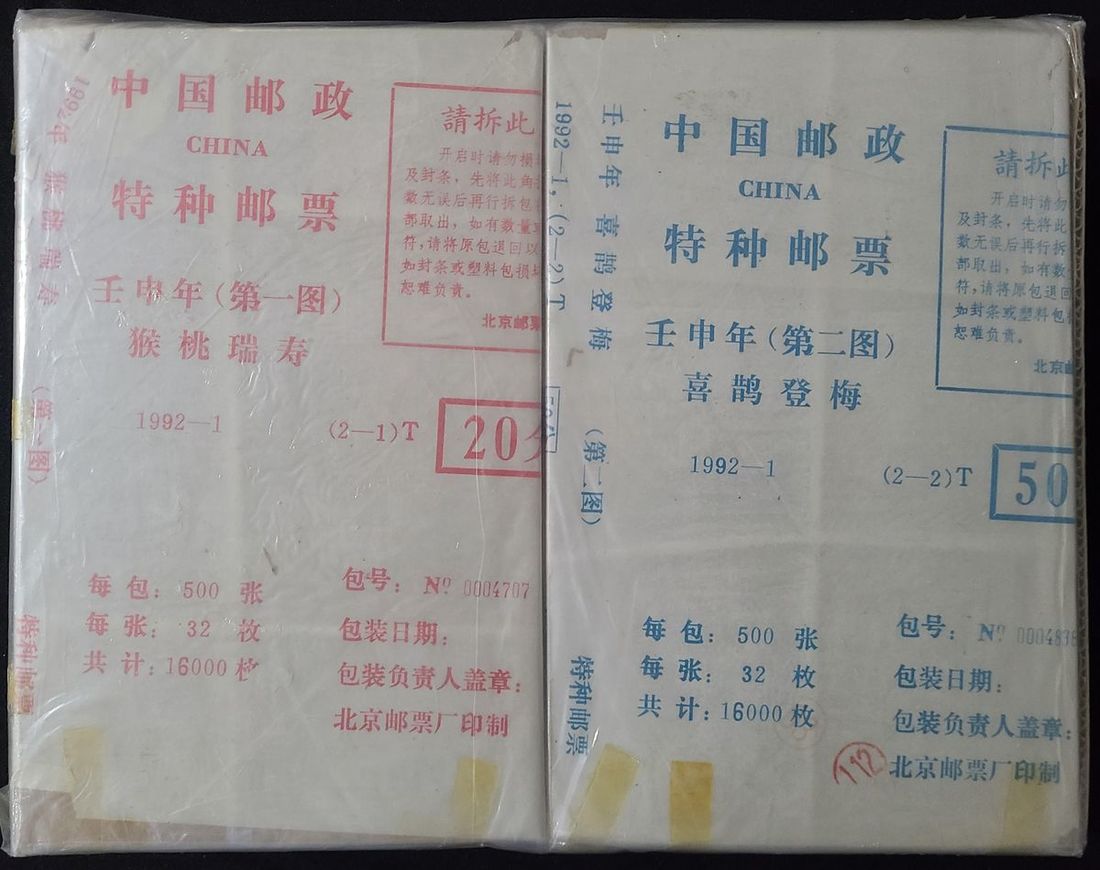 中国邮政
CHINA
特种邮票
壬申年（第一图）
猴桃瑞寿
1992—1
(2—1)T
20
請拆此
开启时请勿损
及封条，先将此
数无误后再行拆包
部取出，如有数量
符，请将原包退回以
如封条或塑料包损
恕难负责。
北京邮票
每包：500 张
每张：32 枚
共计：16000 枚
包号：Nº 0004707
包装日期：
包装负责人盖章：
北京邮票厂印制
1992年
猴桃瑞寿
(第一图)
特种邮票
1992—1，(2—2)T
50分
壬申年 喜鹊登梅
(第二图)
特种邮票
中国邮政
CHINA
特种邮票
壬申年（第二图）
喜鹊登梅
1992—1
(2—2)T
50
請拆此
开启时请勿
及封条，先将此
数无误后再行拆
部取出，如有数
符，请将原包退回
如封条或塑料包
恕难负责。
北京邮
每包：500 张
每张：32 枚
共计：16000 枚
包号：Nº 000483
包装日期：
包装负责人盖章：
112
北京邮票厂印制